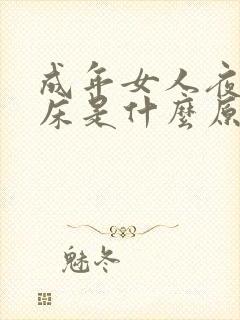 成年女人夜
床是什麼原
魅冬